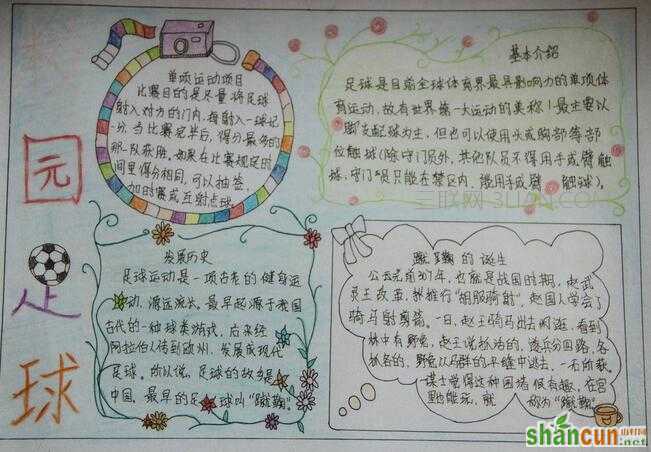 园
足
球
单项运动项目
比赛目的是尽量将足球
射入对方的门内,每射入一球记
一分,当比赛完毕后,得分最多的
那一队获胜。如果在比赛规定时
间里得分相同,可以抽签,
加时赛或互射点球
基本介绍
足球是目前全球体育界最具影响力的单项体
育运动,故有世界第一大运动的美称!最主要以
脚支配球为主,但也可以使用头或胸部等部
位触球(除守门员外,其他队员不得用手或臂触
球,守门员只能在禁区内、能用手或臂触球)。
三联网 3LIAN.COM
发展历史
足球运动是一项古老的健身运
动,源远流长。最早起源于我国
古代的一种球类游戏,后来经
阿拉伯人传到欧洲,发展成现代
足球。所以说,足球的故乡是
中国,最早的足球叫“蹴鞠”。
蹴鞠的诞生
公元前307年,也就是战国时期,赵武
灵王改革,推行“胡服骑射”,赵国人学会了
骑马射剪箭。一日,赵王骑马出去闲逛,看到
林中有野兔,赵王说抓活的,遂兵分四路,各
从马群的
中逃去,一无所获。
谋士觉得这种围堵很有趣,在宫
里也能玩,就称为“蹴鞠”
shancun
.net